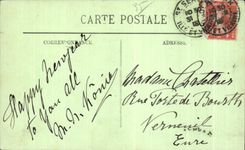 CARTE POSTALE
CORRESPONDANCE
ADRESSE
Happy New year
to you all
M. Dr. König
Madame Chatellier
Rue Porte de
Verneuil
Eure